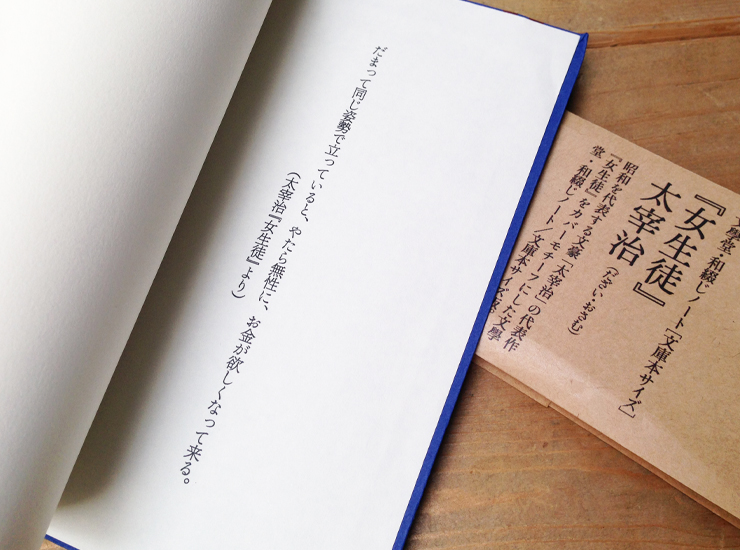 だまって同じ姿勢で立っていると、やたら無性に、お金が欲しくなって来る。
(太宰治『女生徒』より)
文學堂・和綴じノート[文庫本サイズ]
『女生徒』
太宰治
(だざい・おさむ)
昭和を代表する文豪「太宰治」の代表作
『女生徒』をカバーモチーフにした文學
堂・和綴じノート/文庫本サイズ